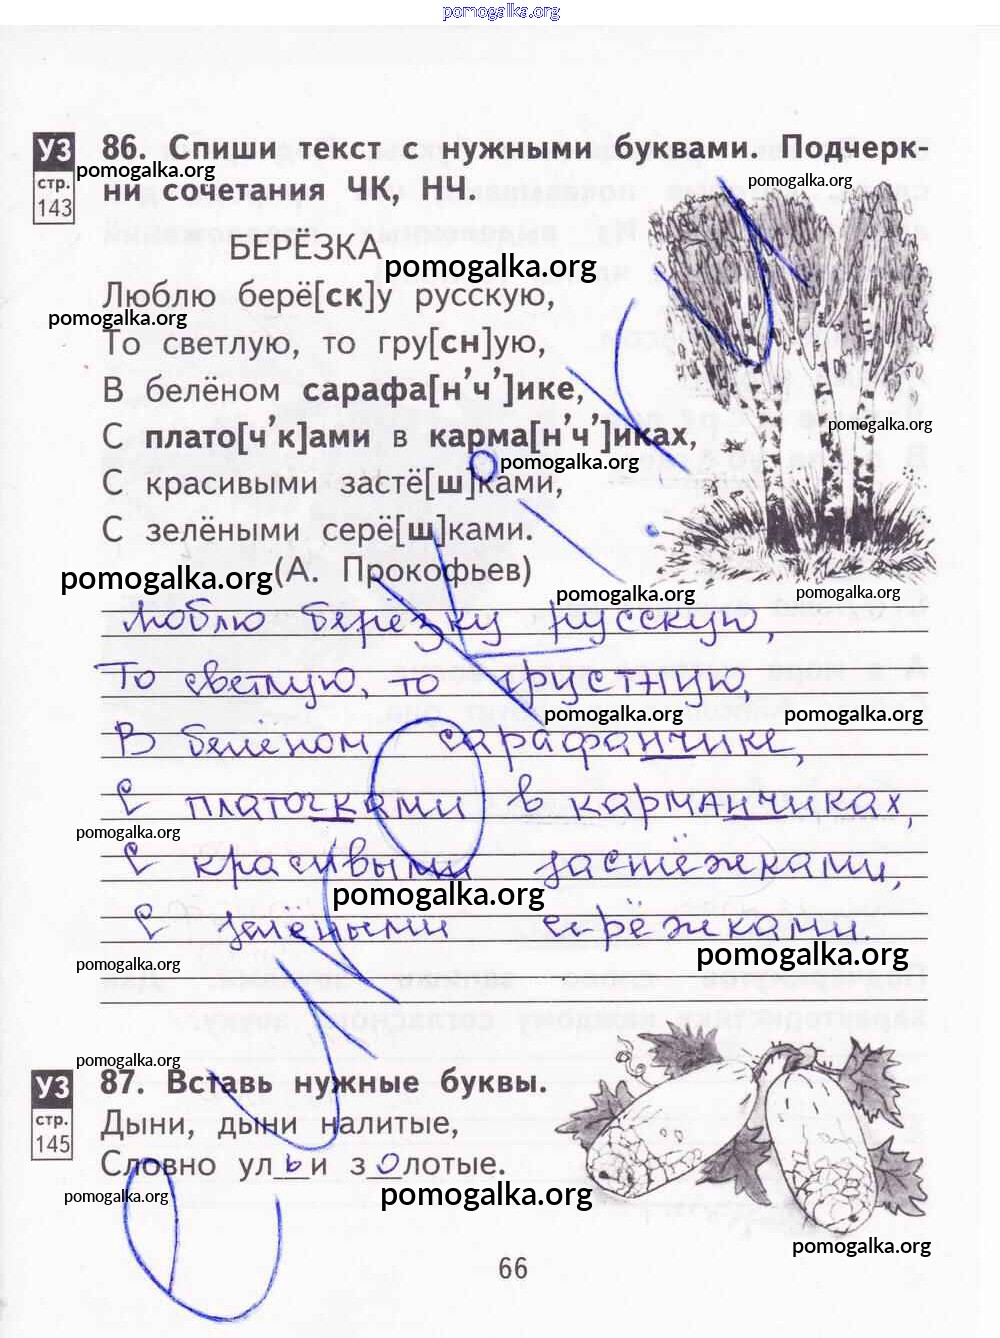 pomogalka.org
УЗ
стр.
143
86. Спиши текст с нужными буквами. Подчерк-
pomogalka.org
pomogalka.org
ни сочетания ЧК, НЧ.
БЕРЁЗКА
pomogalka.org
Люблю берё[ск]у русскую,
pomogalka.org
То светлую, то гру[сн]ую,
pomogalka.org
В белёном сарафа[н’ч’]ике,
pomogalka.org
С плато[ч’к]ами в карма[н’ч’]иках,
pomogalka.org
С красивыми застё[ш]ками,
С зелёными серё[ш]ками.
pomogalka.org
(А. Прокофьев)
pomogalka.org
pomogalka.org
Люблю берёзку русскую,
То светлую, то грустную,
pomogalka.org
pomogalka.org
В белёном сарафанчике,
С платочками в карманчиках,
pomogalka.org
С красивыми застёжками,
pomogalka.org
С зелёными серёжками.
pomogalka.org
pomogalka.org
pomogalka.org
УЗ
стр.
145
87. Вставь нужные буквы.
Дыни, дыни налитые,
Словно ульи золотые.
pomogalka.org
pomogalka.org
pomogalka.org
66